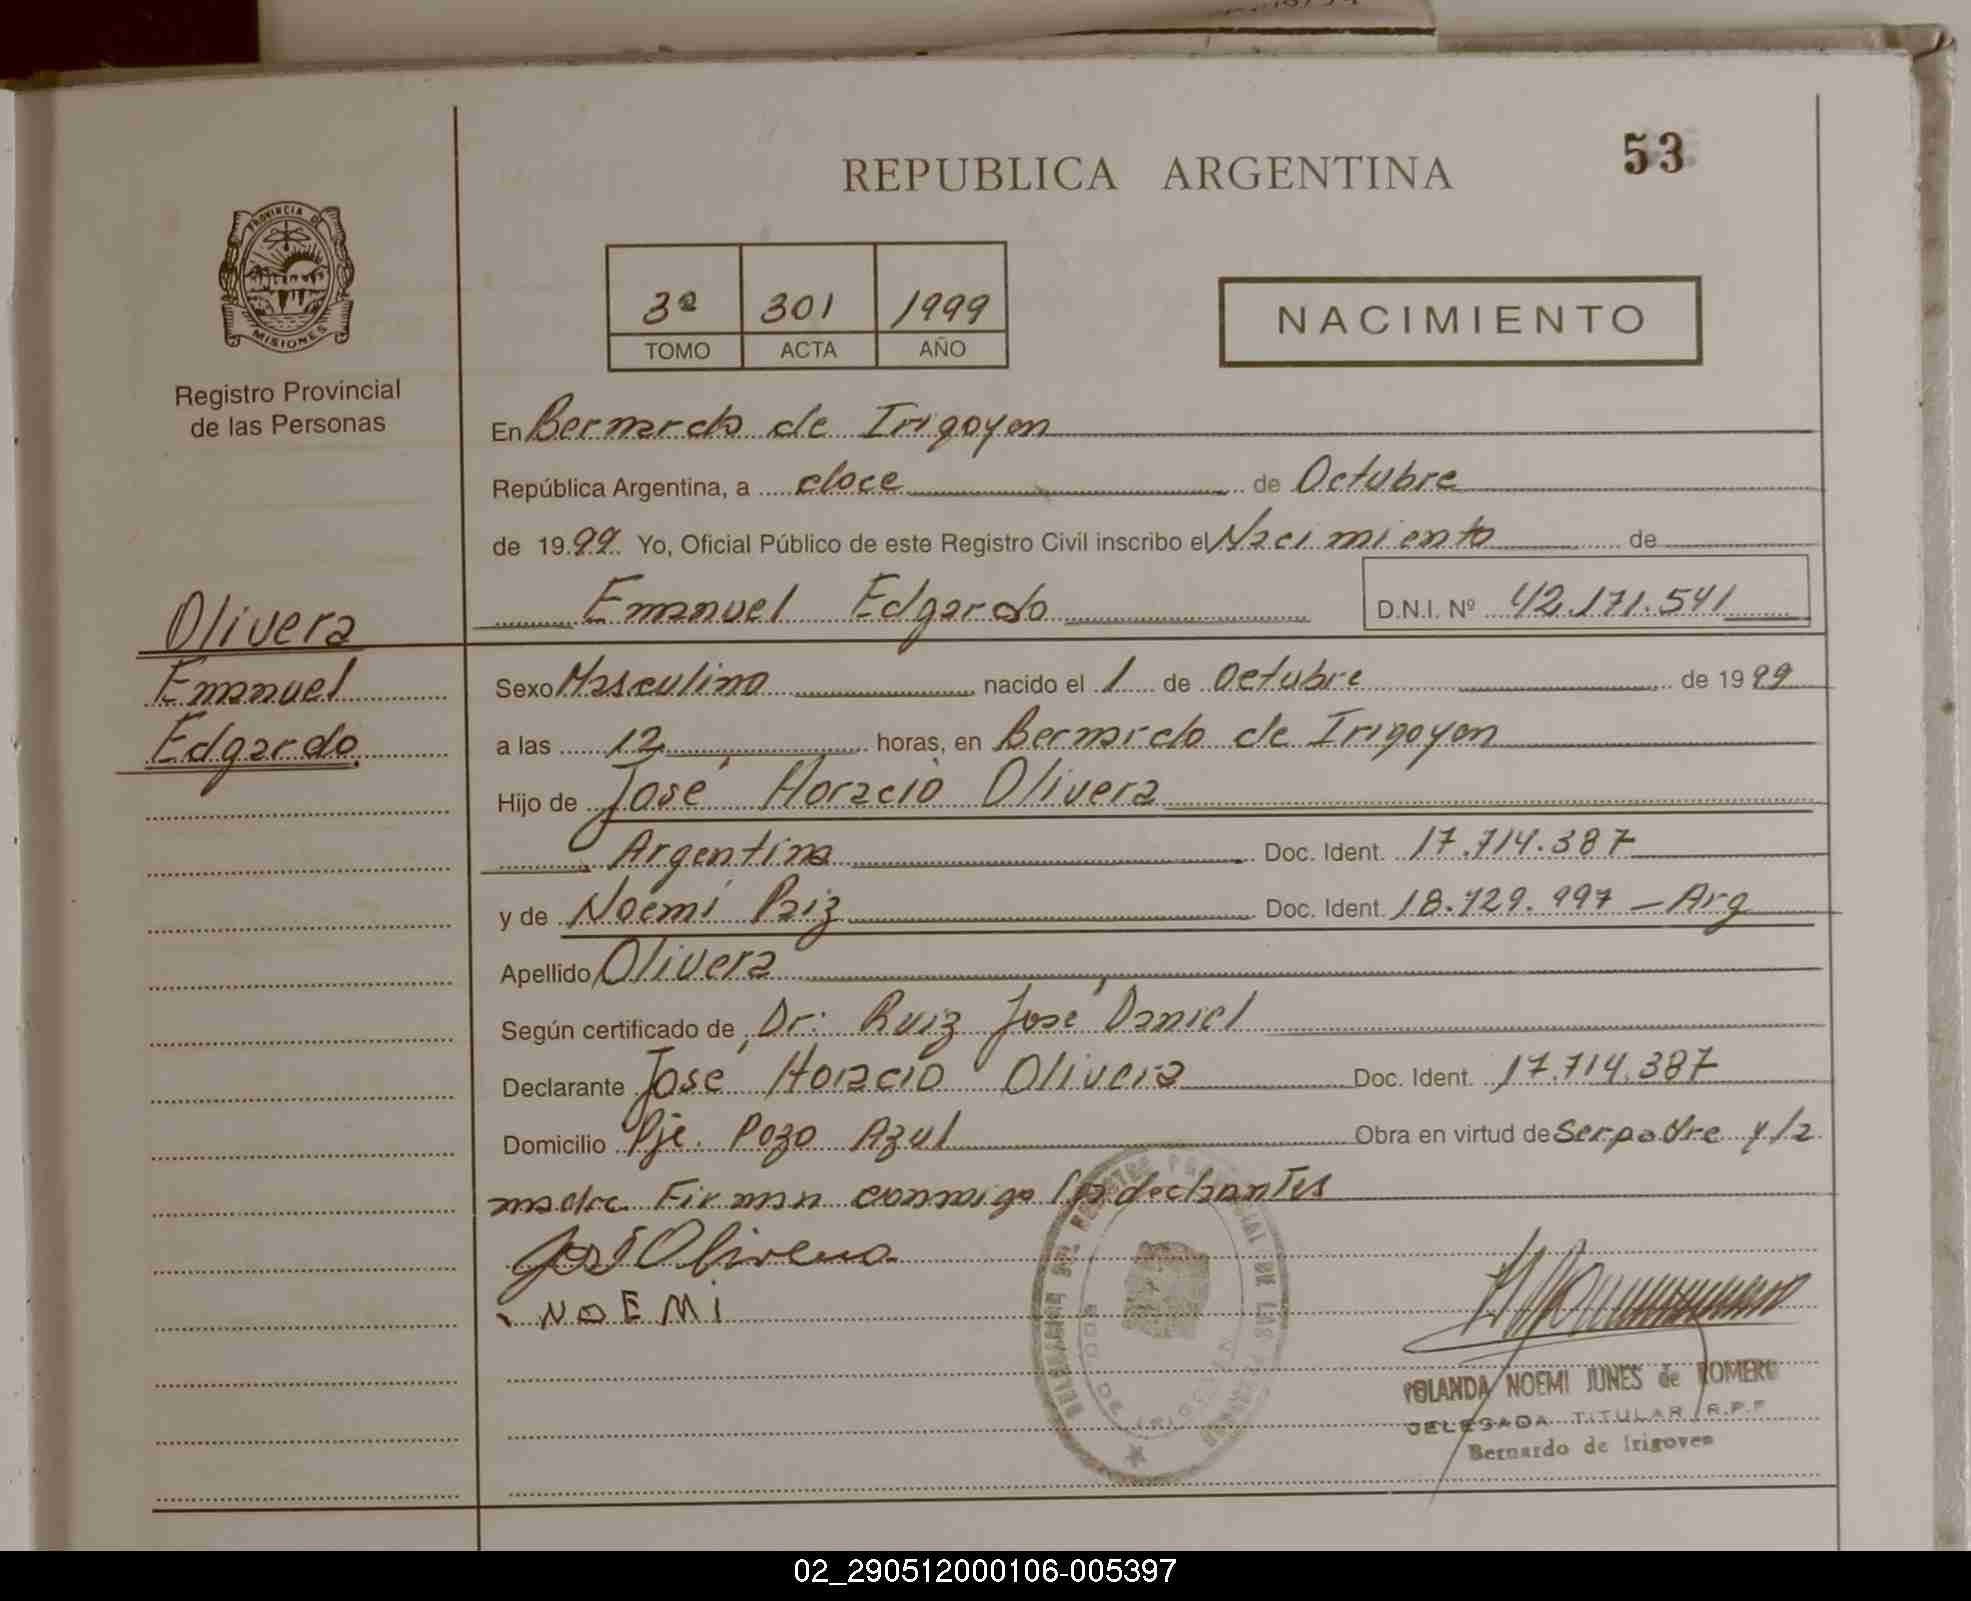 53
REPUBLICA ARGENTINA
PROVINCIA DE
MISIONES
Registro Provincial
de las Personas
3º 301 1999
TOMO ACTA AÑO
NACIMIENTO
En Bernardo de Irigoyen
República Argentina, a doce de Octubre
de 1999 Yo, Oficial Público de este Registro Civil inscribo el Nacimiento de
Emanuel Edgardo D.N.I. Nº 42.171.541
Olivera
Emanuel
Edgardo
Sexo Masculino nacido el 1 de Octubre de 1999
a las 12 horas, en Bernardo de Irigoyen
Hijo de José Horacio Olivera
Argentina Doc. Ident. 17.714.387
y de Noemí Paiz Doc. Ident. 18.729.997 - Arg
Apellido Olivera
Según certificado de Dr: Ruiz José Daniel
Declarante José Horacio Olivera Doc. Ident. 17.714.387
Domicilio Pje. Pozo Azul Obra en virtud de Ser padre y/a
madre Firman conmigo declarantes
José Olivera
NOEMI
YOLANDA NOEMI JUNES de ROMERO
DELEGADA TITULAR R.P.P
Bernardo de Irigoyen
02_290512000106-005397